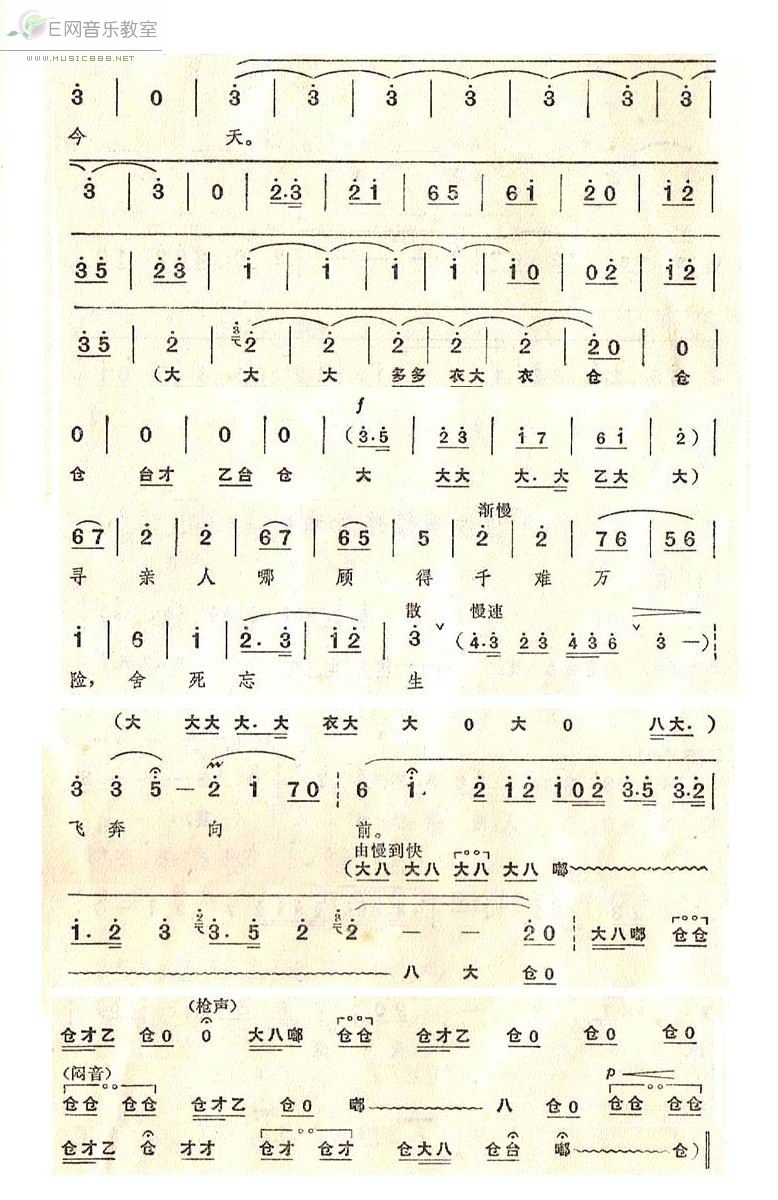 E网音乐教室
WWW.MUSIC888.NET
3 | 0 | 3 | 3 | 3 | 3 | 3 | 3 | 3 |
今 天。
3 | 3 | 0 | 2·3 | 2 1 | 6 5 | 6 1 | 2 0 | 1 2 |
3 5 | 2 3 | 1 | 1 | 1 | 1 | 1 0 | 0 2 | 1 2 |
3 5 | 2 | 2 | 2 | 2 | 2 | 2 | 2 0 | 0
(大 大 大 多多 衣大 衣 仓 仓
f
0 | 0 | 0 | 0 | (3·5 | 2 3 | 1 7 | 6 1 | 2) |
仓 台才 乙台 仓 大 大大 大. 大 乙大 大)
渐慢
6 7 | 2 | 2 | 6 7 | 6 5 | 5 | 2 | 2 | 7 6 | 5 6 |
寻 亲 人 哪 顾 得 千 难 万
散 慢速
1 | 6 | 1 | 2. 3 | 1 2 | 3 ˇ (4·3 2 3 4 3 6 ˇ 3 —)
险, 舍 死 忘 生
(大 大大 大. 大 衣大 大 0 大 0 八大. )
3 3 5 — 2 1 7 0 6 1. 2 1 2 1 0 2 3·5 3·2 |
飞 奔 向 前。
由慢到快
(大八 大八 大八 大八 嘟
1. 2 3 3. 5 2 2 — — 2 0 大八嘟 仓仓
八 大 仓0
(枪声)
仓才乙 仓0 0 大八嘟 仓仓 仓才乙 仓0 仓0 仓0
(闷音) p
仓仓 仓仓 仓才乙 仓0 嘟 八 仓0 仓仓 仓仓
仓才乙 仓 才才 仓才 仓才 仓大八 仓台 嘟 仓)